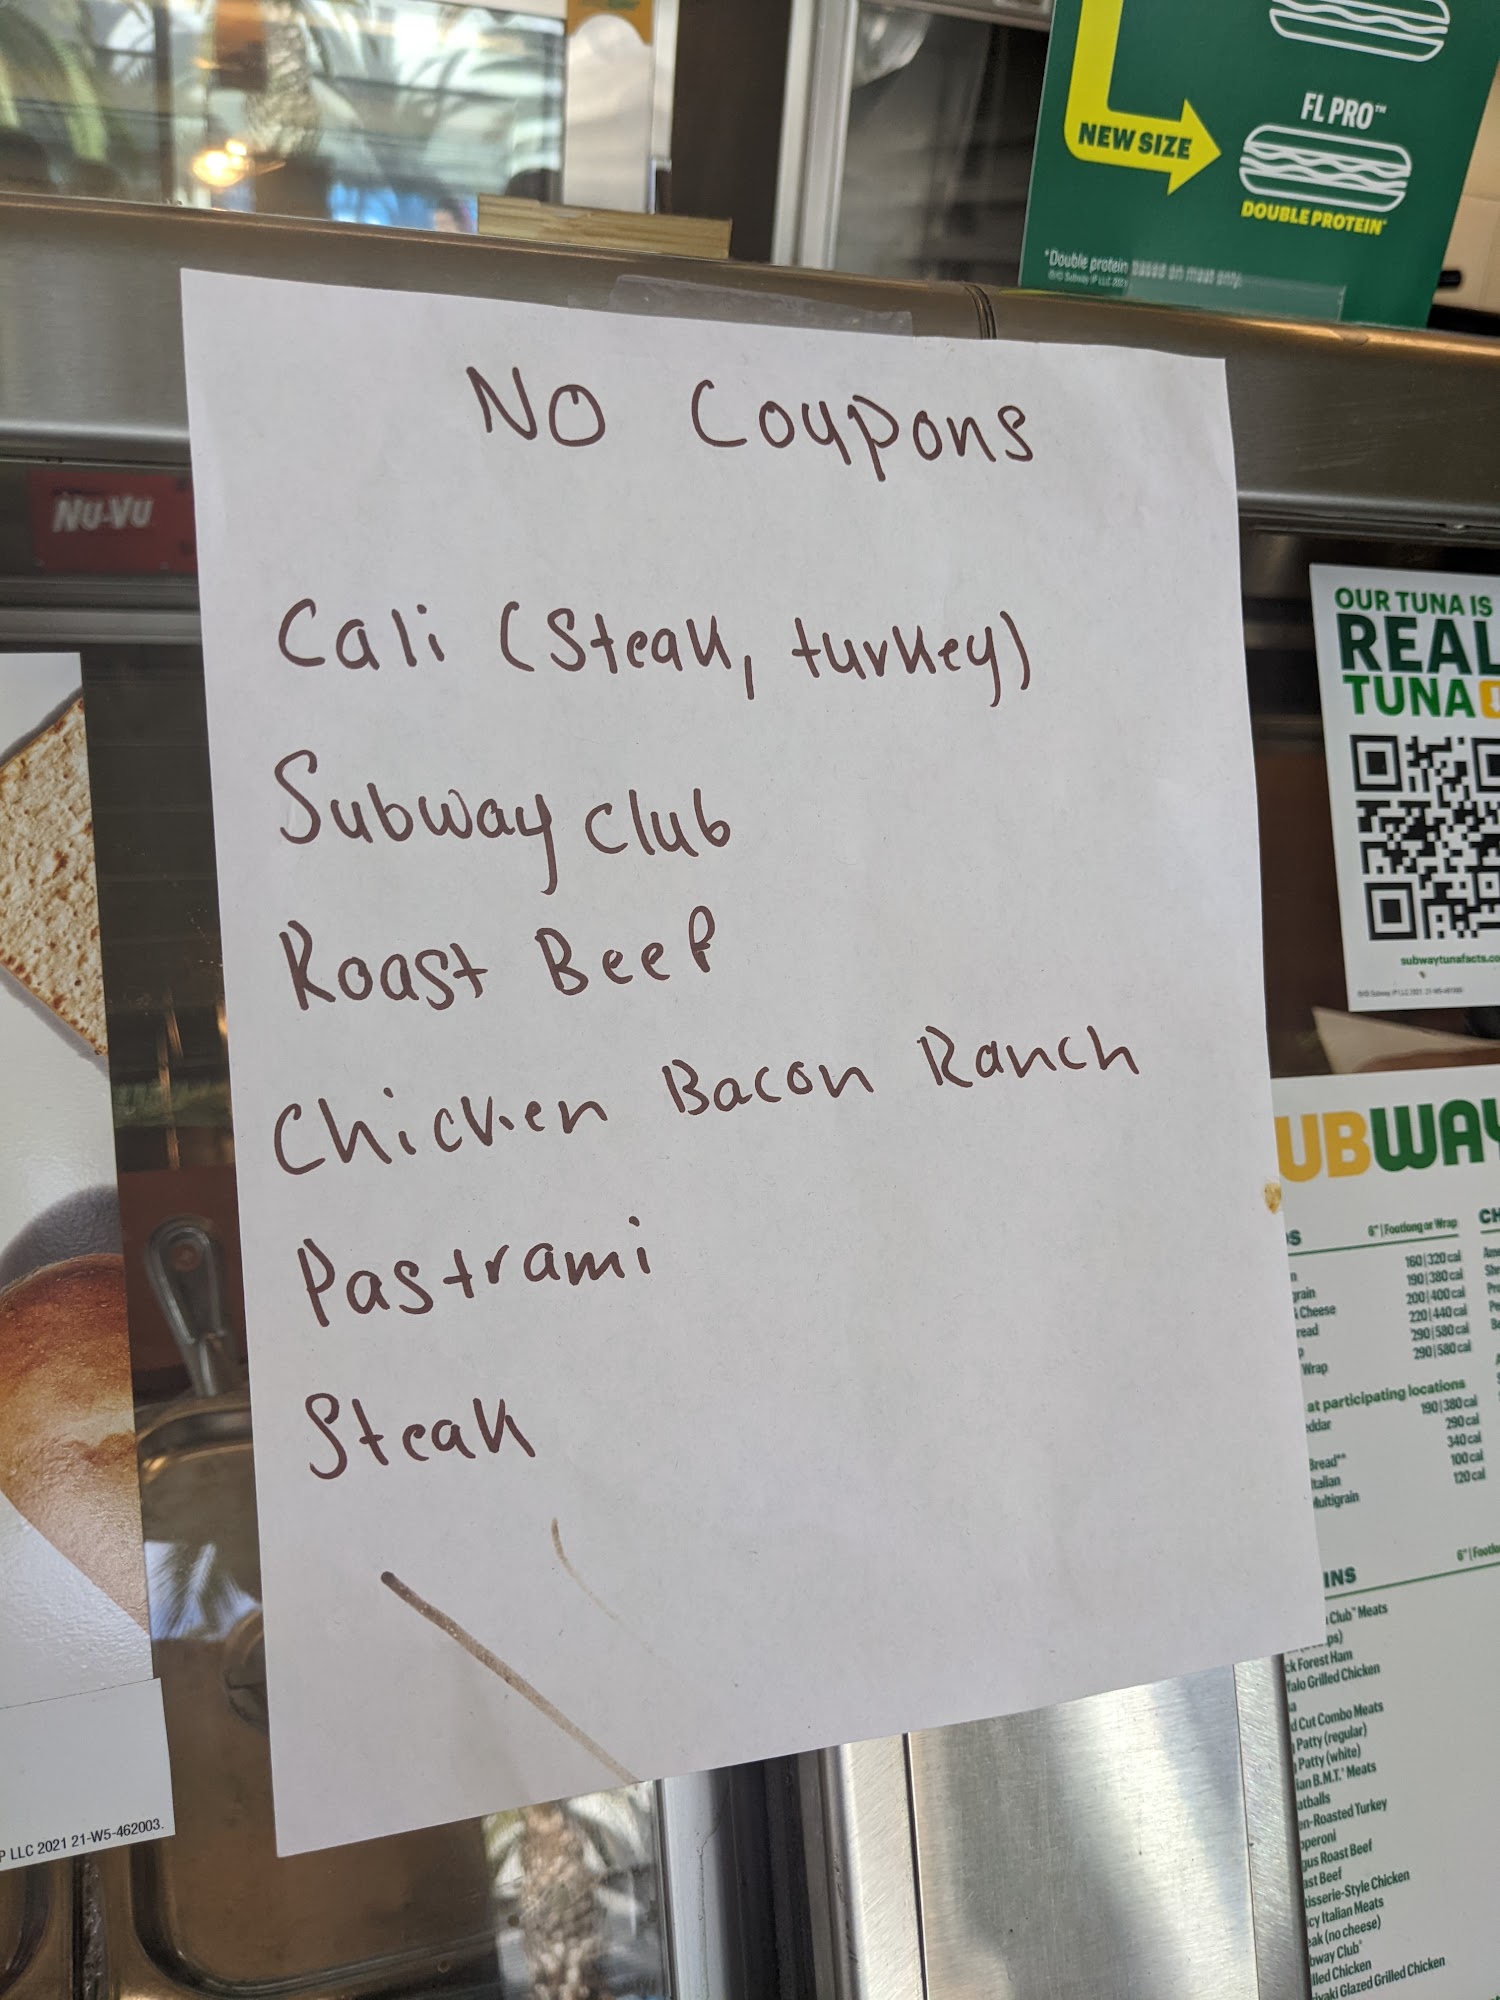 FL PRO™
NEW SIZE
DOUBLE PROTEIN*
*Double protein based on meat only.
NO Coupons
NU-VU
Cali (Steak, turkey)
Subway club
Roast Beef
Chicken Bacon Ranch
Pastrami
Steak
OUR TUNA IS
REAL
TUNA
subwaytunafacts.co
UBWAY
6" | Footlong or Wrap
160 | 320 cal
190 | 380 cal
grain 200 | 400 cal
& Cheese 220 | 440 cal
read 290 | 580 cal
290 | 580 cal
Wrap
at participating locations
eddar 190 | 380 cal
290 cal
Bread** 340 cal
Italian 100 cal
Multigrain 120 cal
6" | Footlo
INS
Club® Meats
ps)
ck Forest Ham
falo Grilled Chicken
a
d Cut Combo Meats
Patty (regular)
Patty (white)
ian B.M.T.® Meats
atballs
en-Roasted Turkey
peroni
gus Roast Beef
ast Beef
tisserie-Style Chicken
icy Italian Meats
eak (no cheese)
bway Club®
lled Chicken
iyaki Glazed Grilled Chicken
P LLC 2021 21-W5-462003.